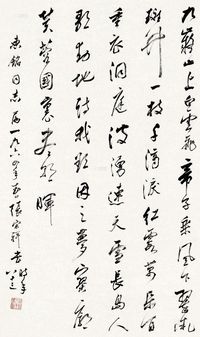 九嶷山上白雲飛帝子乘風下翠微
斑竹一枝千滴淚紅霞萬朵百
重衣洞庭波湧連天雪長島人
歌動地詩我欲因之夢寥廓
芙蓉國裏盡朝暉
同志屬一九六四年張宗祥書時年
八十三